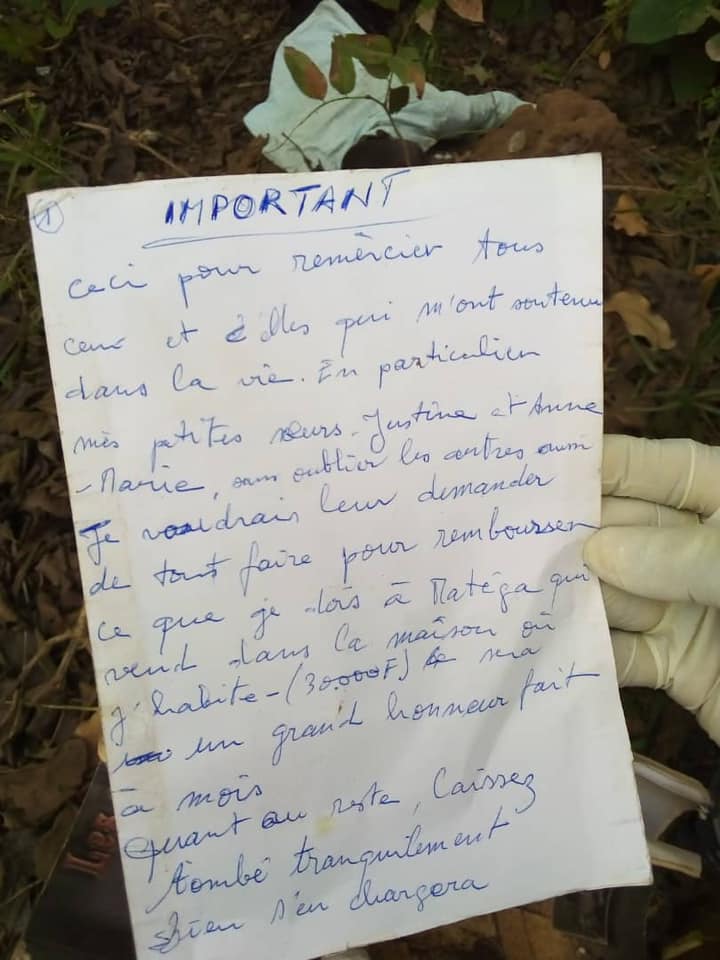 1
IMPORTANT
Ceci pour remèrcier tous
ceux et èlles qui m'ont soutenu
dans la vie. En particulier
mès petites sœurs. Justine et Anne
-Marie, sans oublier les autres aussi
Je voudrais leur demander
de tout faire pour rembourser
ce que je dois à Matéga qui
vend dans la maison où
j'habite - (30.000F) sera
un grand honneur fait
à mois
Quant au reste, laissez
tombé tranquilement
Dieu s'en chargera